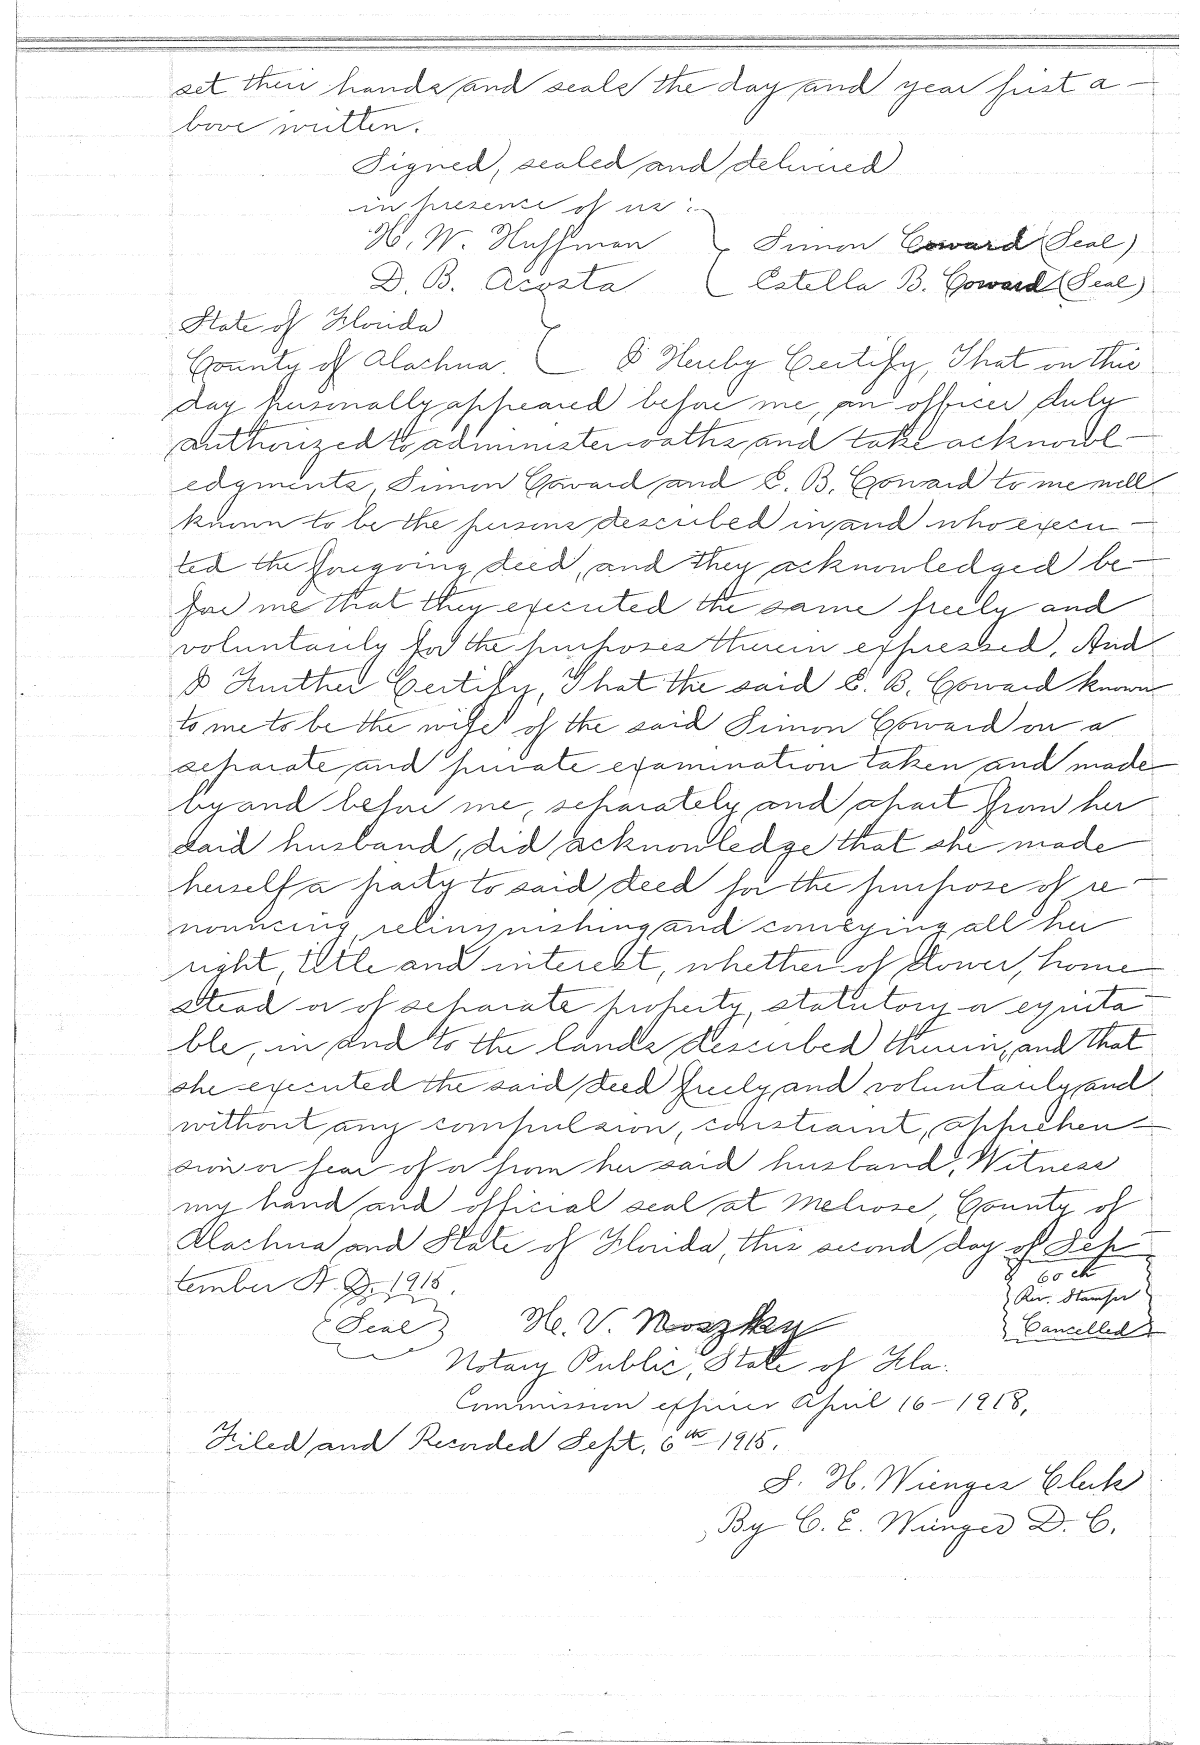 set their hands and seals the day and year first a-
bove written.
Signed, sealed and delivered
in presence of us:
H. W. Huffman } Simon Coward (Seal)
D. B. Acosta { Estella B. Coward (Seal)
State of Florida
County of Alachua. { I Hereby Certify, That on this
day personally appeared before me, an officer duly
authorized to administer oaths and take acknowl-
edgments, Simon Coward and E. B. Coward to me well
known to be the persons described in and who execu-
ted the foregoing deed, and they acknowledged be-
fore me that they executed the same freely and
voluntarily for the purposes therein expressed. And
I Further Certify, That the said E. B. Coward known
to me to be the wife of the said Simon Coward on a
separate and private examination taken and made
by and before me, separately and apart from her
said husband, did acknowledge that she made
herself a party to said deed for the purpose of re-
nouncing, relinquishing and conveying all her
right, title and interest, whether of dower, home
stead or of separate property, statutory or equita-
ble, in and to the lands described therein, and that
she executed the said deed freely and voluntarily and
without any compulsion, constraint, apprehen-
sion or fear of or from her said husband. Witness
my hand and official seal at Melrose, County of
Alachua and State of Florida, this second day of Sep-
tember A. D. 1915.
60 ct
Rev. Stamps
Cancelled
(Seal) H. V.
Notary Public, State of Fla.
Commission expires April 16-1918.
Filed and Recorded Sept. 6th 1915.
S. H. Wienges Clerk
By C. E. Wienges D. C.